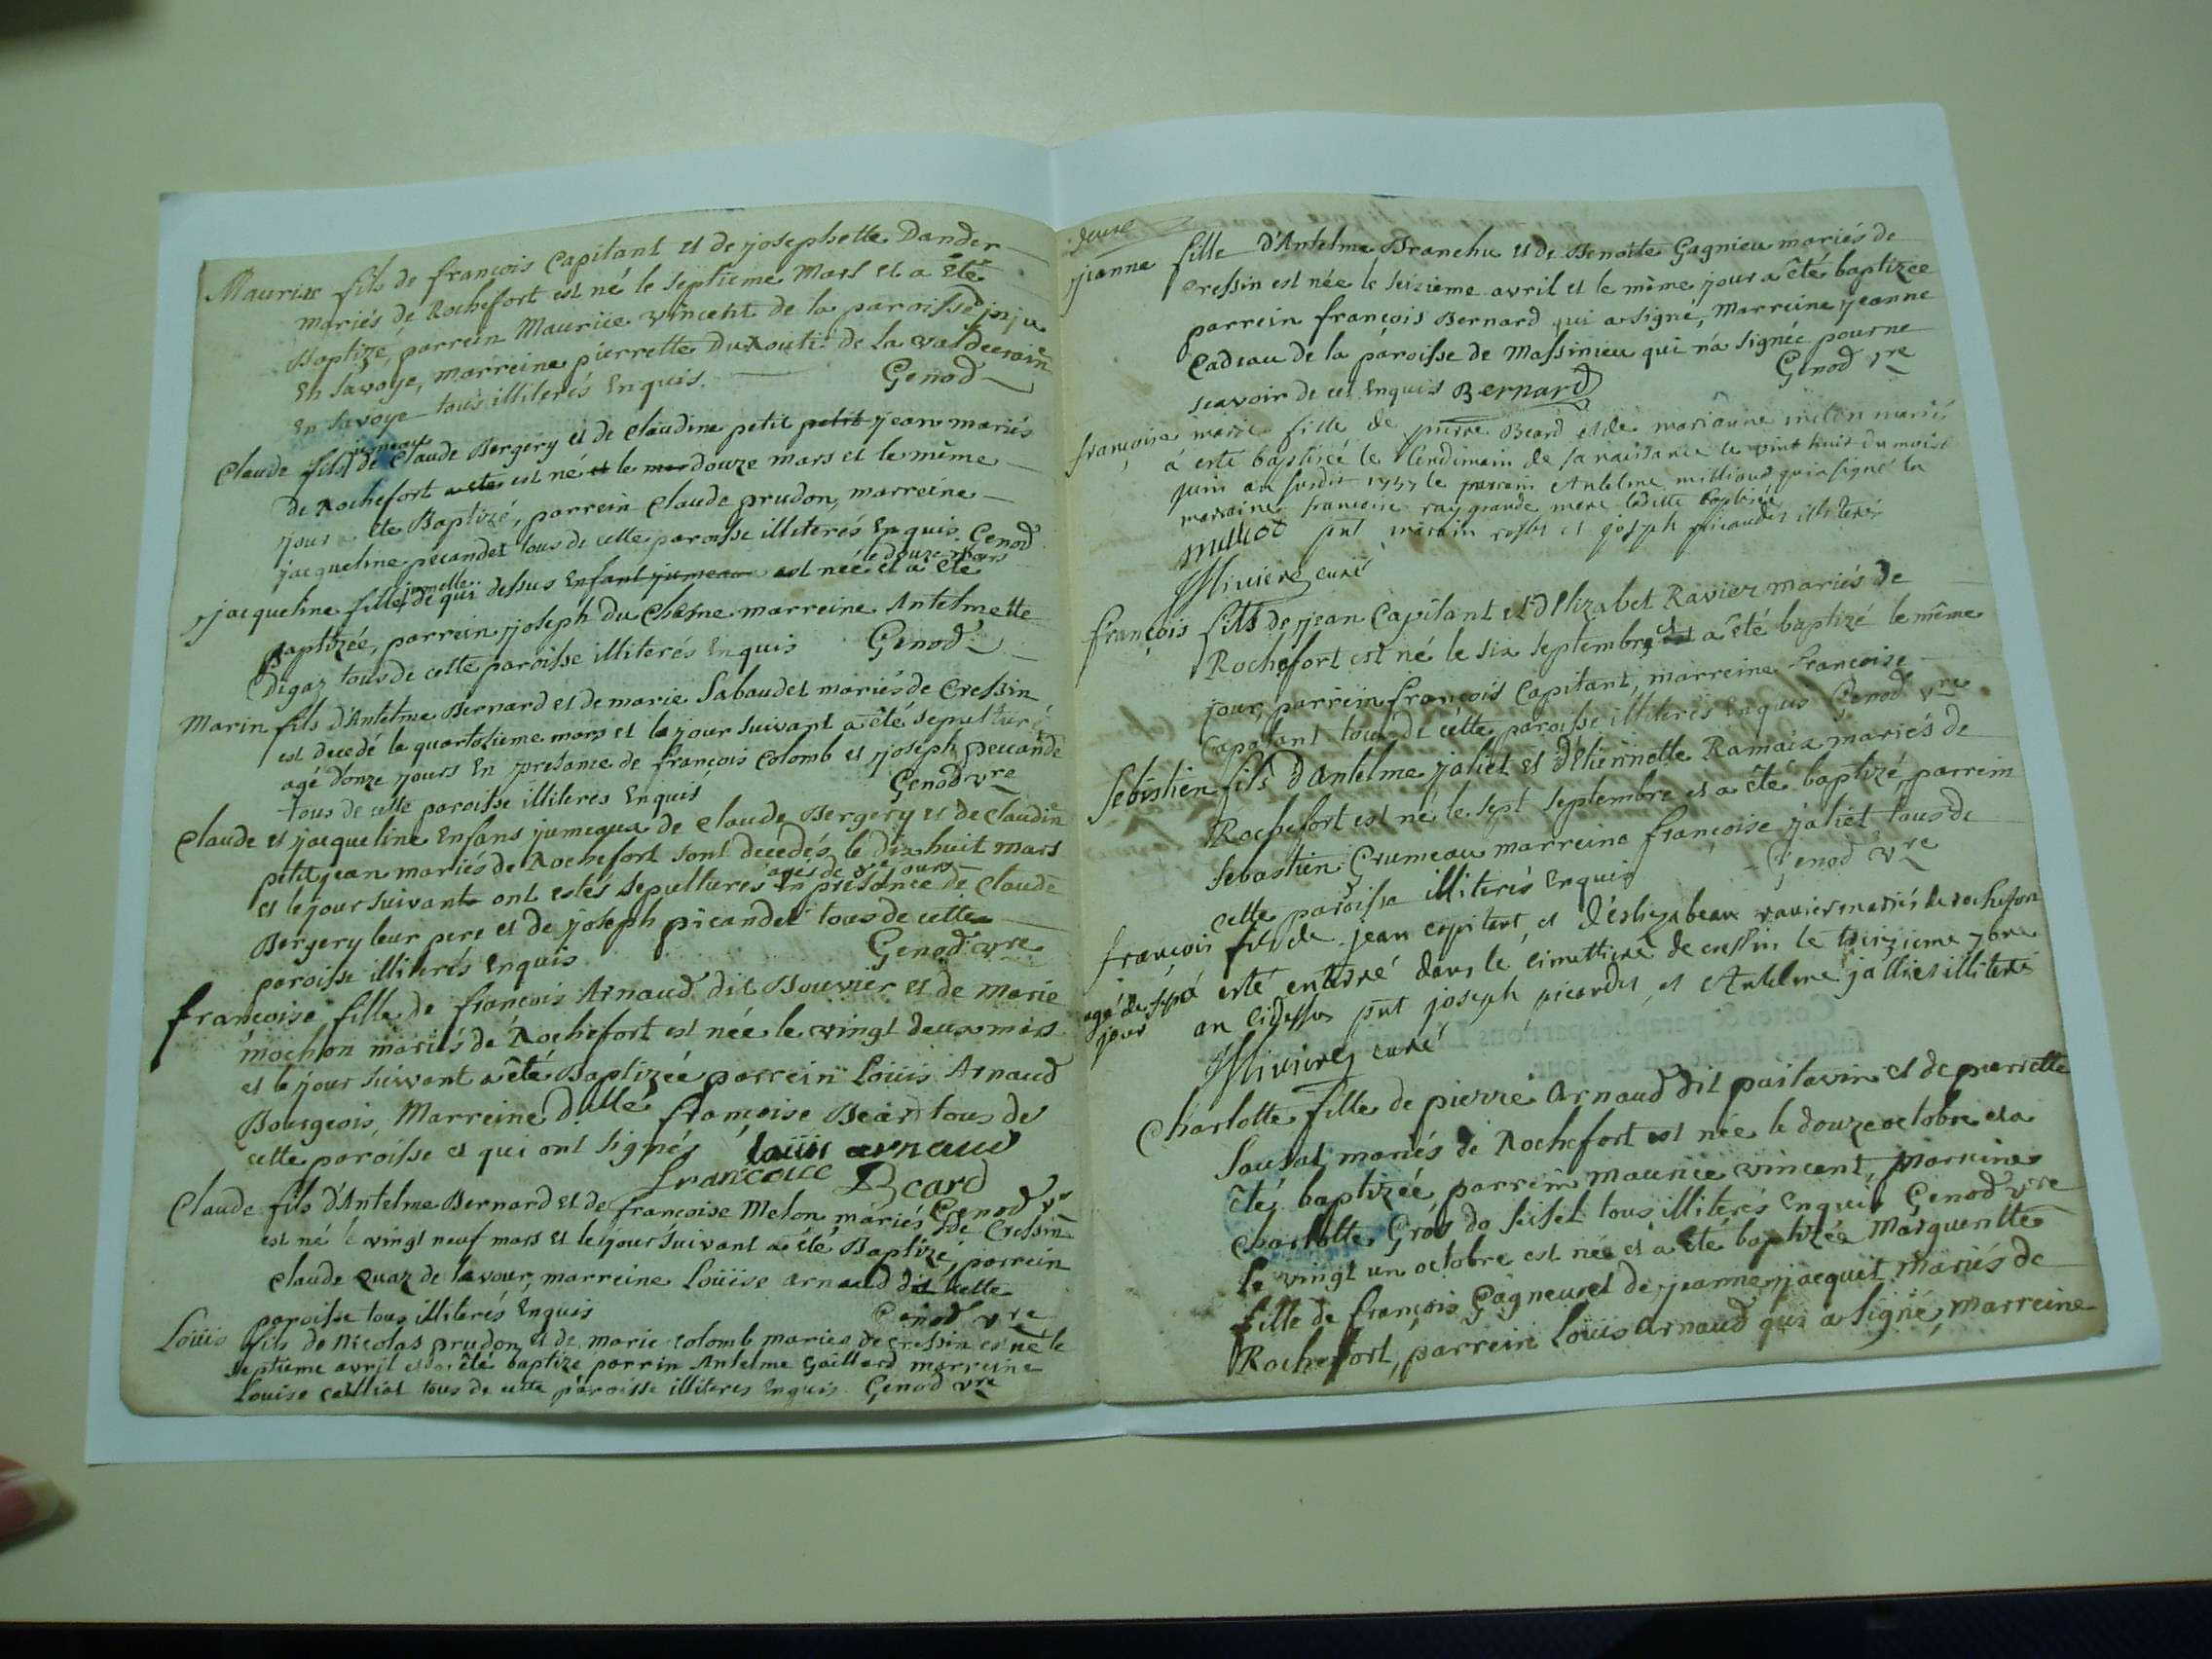 Maurice fils de françois Capitant et de josephette Dander
mariés de Rochefort est né le septieme Mars et a été
Baptizé, parrein Maurice vincent de la paroisse
En Savoye, marreine pierrette de la
en Savoye tous illiterés Enquis. Genod
jumeau
Claude fils de Claude Bergery et de Claudine petit petit jean mariés
de Rochefort a été est né et le mar douze mars et le même
jour a été Baptizé, parrein Claude prudon, marreine
jacqueline pecandet tous de cette paroisse illiterés Enquis. Genod
jumelle le douze mars
jacqueline fille de qui dessus Enfant jumeau est née et a été
Baptizée, parrein joseph du Chesne marreine Antelmette
Digaz tous de cette paroisse illiterés Enquis Genod
Marin fils d'Antelme Bernard et de marie Sabaudet mariés de Cressin
est decedé le quatorzieme mars et le jour suivant a été sepulturé
agé d'onze jours En presance de françois Colomb et joseph peccande
tous de cette paroisse illiterés Enquis Genod vre
Claude et jacqueline Enfans jumeaux de claude Bergery et de Claudine
petitjean mariés de Rochefort sont decedés le dix huit mars
agés de six jours
et le jour suivant ont estés sepulturés En presance de Claude
Bergery leur pere et de joseph picandet tous de cette
paroisse illiterés Enquis Genod vre
françoise fille de françois Arnaud dit Bouvier et de Marie
mochon mariés de Rochefort est née le vingt deux mars
et le jour suivant a été Baptizée parrein Loüis Arnaud
Bourgeois, Marreine dlle françoise Béard tous de
cette paroisse et qui ont signés loüis arnaud
francoise Beard
Genod vre
Claude fils d'Antelme Bernard et de françoise Melon mariés de Cressin
est né le vingt neuf mars et le jour suivant a été Baptizé, parrein
Claude quaz de lavour, marreine Loüise arnaud de cette
paroisse tous illiterés Enquis Genod vre
Loüis fils de Nicolas prudon et de marie colomb mariés de cressin est né le
septieme avril et a été baptizé parrin Antelme Gaillard marreine
Louise tous de cette paroisse illiteres Enquis Genod vre
deuxe
jeanne fille d'Antelme Branchu et de Benoite Gagnieu mariés de
Cressin est née le seizieme avril et le même jour a été baptizée
parrein françois Bernard qui a signé, Marreine jeanne
Cadeau de la paroisse de Massinieu qui n'a signée pour ne
scavoir de ce Enquis Bernard Genod vre
françoise marie fille de pierre Béard et de marianne melon mariés
à esté baptisée le lendimain de sa naissance le vint huit du mois
juin an susdit 1757 le parrain Antelme milliout qui a signé la
marraine francoise ray grande mere laditte baptisée
milliod pnt et joseph picandet illiteré
curé
françois fils de jean Capitant et d'Elizabet Ravier mariés de
Rochefort est né le six septembre et a été baptizé le même
jour, parrein françois Capitant, marreine françoise
Capitant tous de cette paroisse illiterés Enquis Genod vre
Sebastien fils d'Antelme jaliet et d'Etiennette Ramaix mariés de
Rochefort est né le sept septembre et a été baptizé, parrein
Sebastien Grumeau marreine françoise jaliet tous de
cette paroisse illiterés Enquis Genod vre
françois fils de jean capitant et d'eslizabeau ravier mariés de rochefort
agé de sept à esté enterré dans le cimettiere de cressin le treizieme 7bre
jour an cidessus pnt joseph picandet et Antelme jalliet illiterés
curé
Charlotte fille de pierre Arnaud dit poitavin et de pierrette
Sausat mariés de Rochefort est née le douze octobre et a
été baptizée parrein maurice vincent, Marreine
Charlotte Gros de seisel tous illiterés Enquis Genod vre
Le vingt un octobre est née et a été baptizée Margueritte
fille de françois Gagneur et de jeanne jacquet mariés de
Rochefort, parrein Loüis Arnaud qui a signé, Marreine